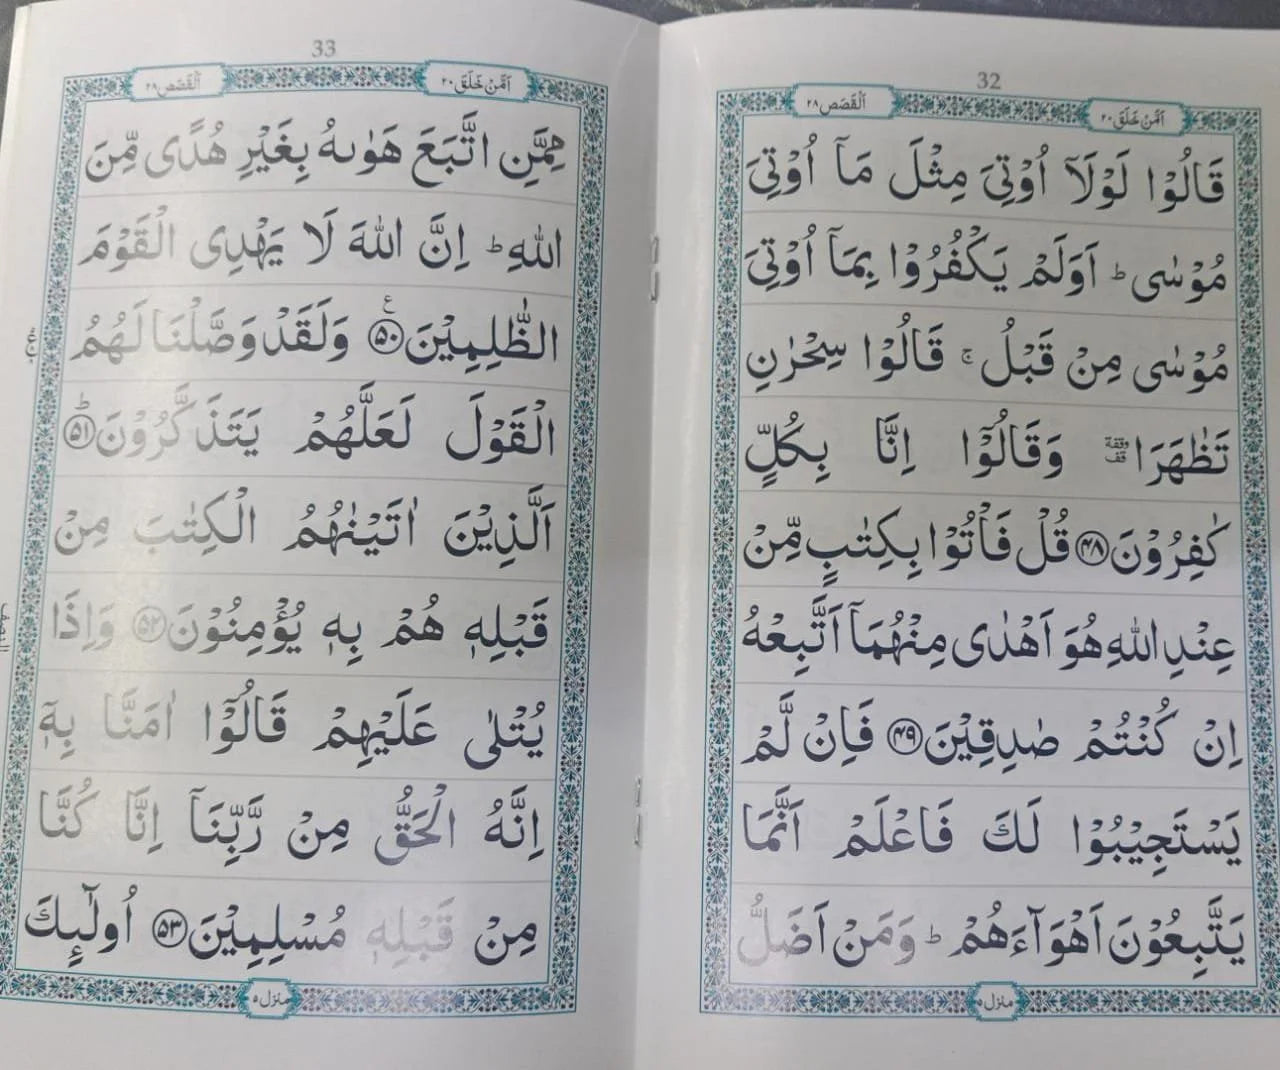 32
اَمَّنْ خَلَقَ ۲۰
اَلْقَصَص ۲۸
قَالُوْا لَوْلَاۤ اُوْتِىَ مِثْلَ مَاۤ اُوْتِىَ
مُوْسٰى ؕ اَوَلَمْ يَكْفُرُوْا بِمَاۤ اُوْتِىَ
مُوْسٰى مِنْ قَبْلُ ۚ قَالُوْا سِحْرٰنِ
تَظٰهَرَا وقفة قف وَقَالُوْۤا اِنَّا بِكُلٍّ
كٰفِرُوْنَ ﴿۴۸﴾ قُلْ فَاْتُوْا بِكِتٰبٍ مِّنْ
عِنْدِ اللّٰهِ هُوَ اَهْدٰى مِنْهُمَاۤ اَتَّبِعْهُ
اِنْ كُنْتُمْ صٰدِقِيْنَ ﴿۴۹﴾ فَاِنْ لَّمْ
يَسْتَجِيْبُوْا لَكَ فَاعْلَمْ اَنَّمَا
يَتَّبِعُوْنَ اَهْوَآءَهُمْ ؕ وَمَنْ اَضَلُّ
منزل ۵
33
اَمَّنْ خَلَقَ ۲۰
اَلْقَصَص ۲۸
مِمَّنِ اتَّبَعَ هَوٰٮهُ بِغَيْرِ هُدًى مِّنَ
اللّٰهِ ؕ اِنَّ اللّٰهَ لَا يَهْدِى الْقَوْمَ
الظّٰلِمِيْنَ ﴿۵۰﴾ ع وَلَقَدْ وَصَّلْنَا لَهُمُ
الْقَوْلَ لَعَلَّهُمْ يَتَذَكَّرُوْنَ ﴿۵۱﴾ ؕ
اَلَّذِيْنَ اٰتَيْنٰهُمُ الْكِتٰبَ مِنْ
قَبْلِهٖ هُمْ بِهٖ يُؤْمِنُوْنَ ﴿۵۲﴾ وَاِذَا
يُتْلٰى عَلَيْهِمْ قَالُوْۤا اٰمَنَّا بِهٖۤ
اِنَّهُ الْحَقُّ مِنْ رَّبِّنَاۤ اِنَّا كُنَّا
مِنْ قَبْلِهٖ مُسْلِمِيْنَ ﴿۵۳﴾ اُولٰٓٮِٕكَ
منزل ۵